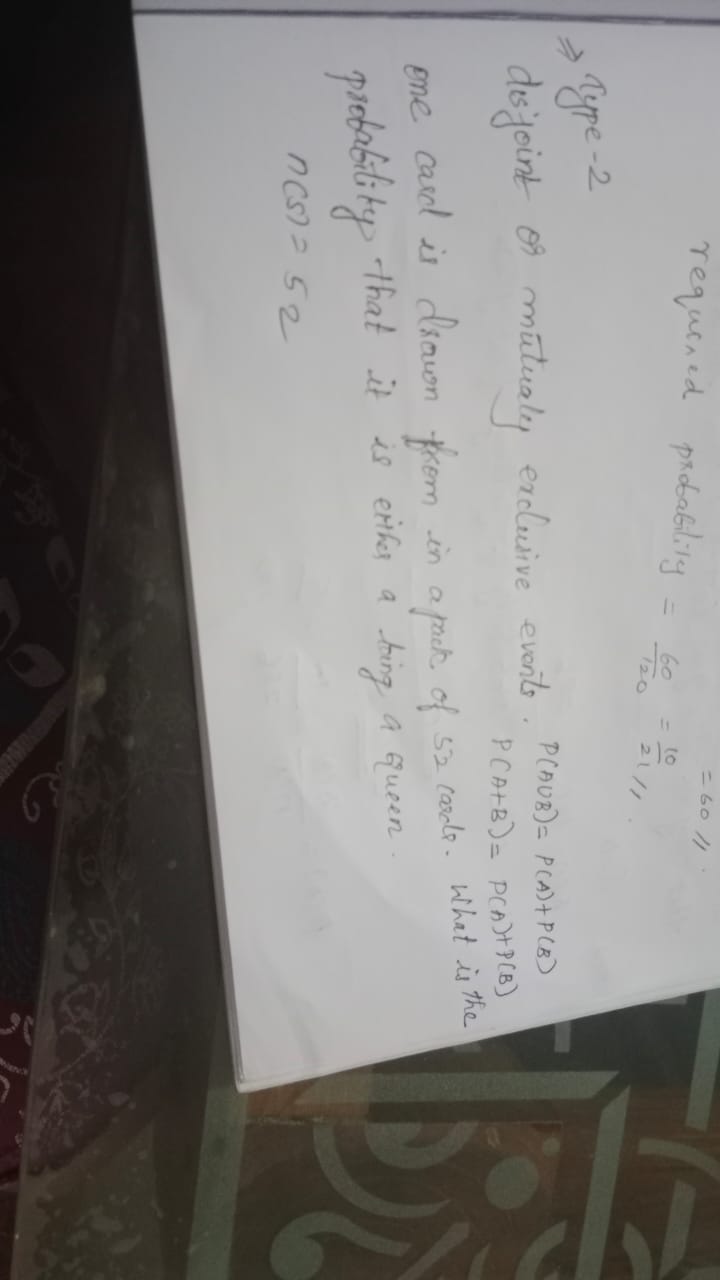 = 60 //.
required probability = 60/120 = 10/21 //.
⇒ Type-2
disjoint or mutualy exclusive events. P(AUB)= P(A)+P(B)
P(A+B)= P(A)+P(B)
one card is drawon from in a pack of 52 cards. What is the
probability that it is either a king a Queen.
n(s)= 52